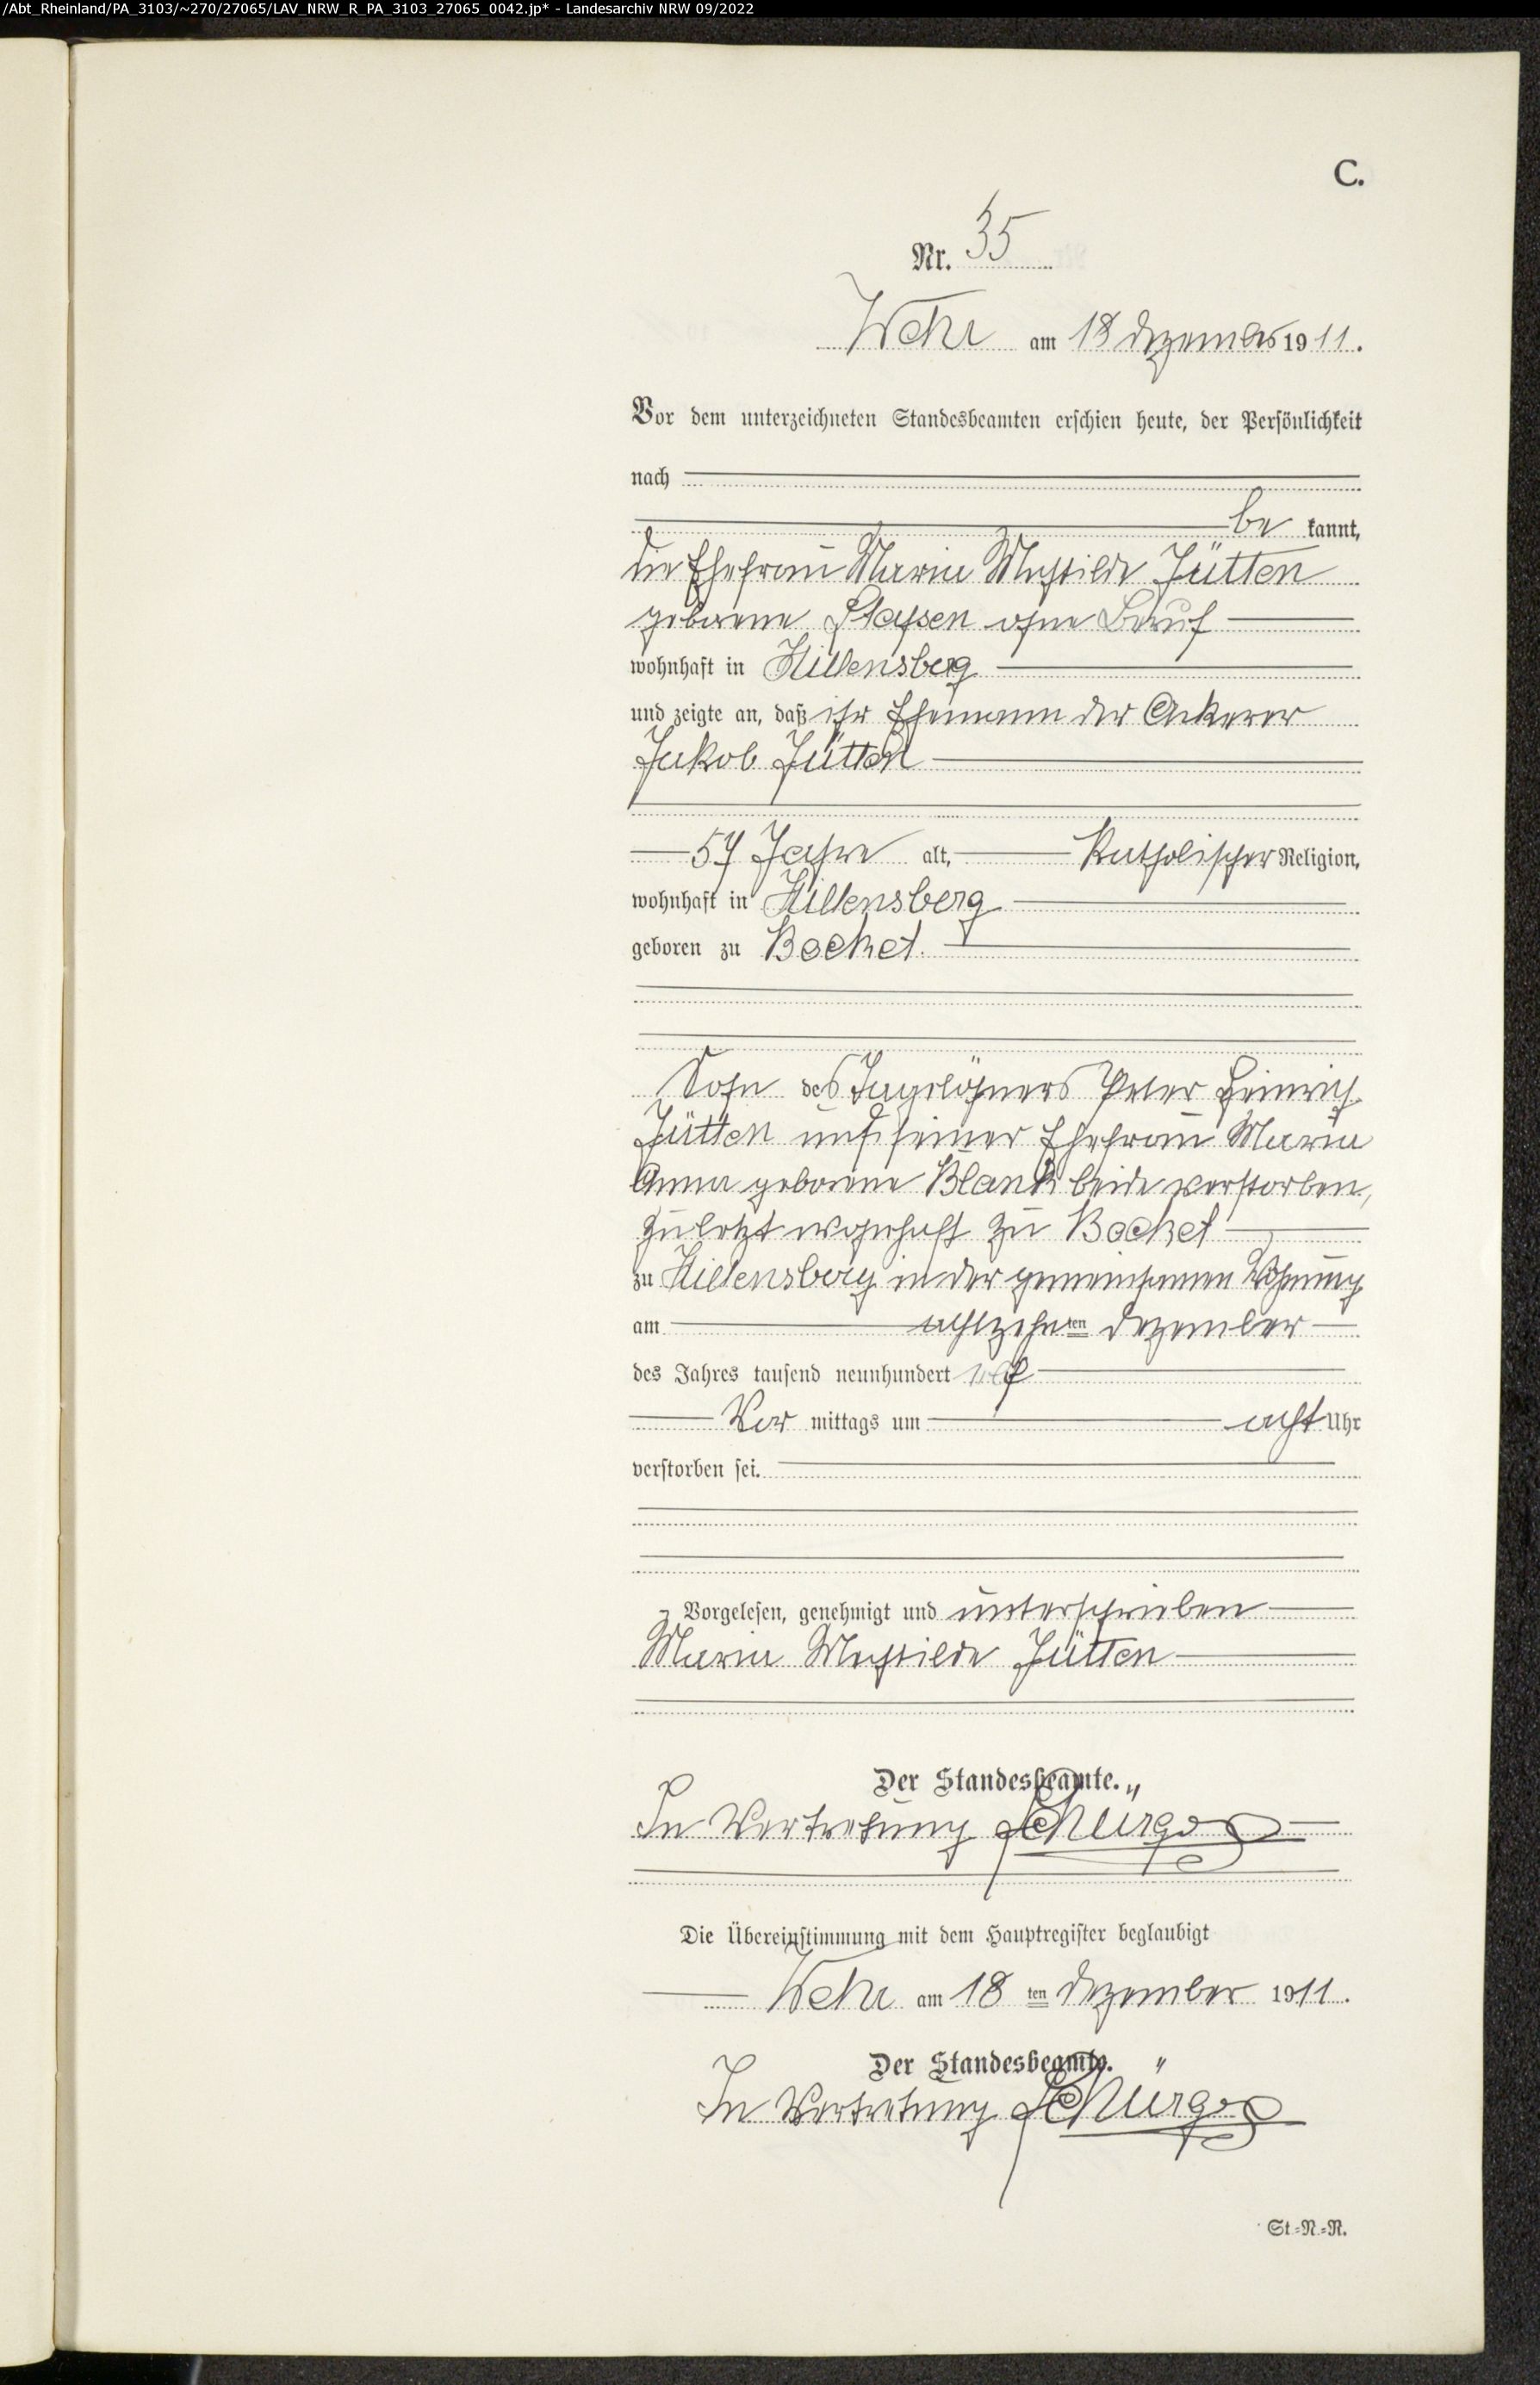 /Abt_Rheinland/PA_3103/~270/27065/LAV_NRW_R_PA_3103_27065_0042.jp* - Landesarchiv NRW 09/2022
C.
Nr. 35
Wehr am 18 Dezember 1911.
Vor dem unterzeichneten Standesbeamten erschien heute, der Persönlichkeit
nach
be kannt,
die Ehefrau Maria Mechtilde Jütten
geborene Stassen ohne Beruf
wohnhaft in Hillensberg
und zeigte an, daß ihr Ehemann der Ackerer
Jakob Jütten
57 Jahre alt, Katholischer Religion,
wohnhaft in Hillensberg
geboren zu Bocket.
Sohn des Tagelöhners Peter Heinrich
Jütten und seiner Ehefrau Maria
Anna geborene Blank beide verstorben,
zuletzt wohnhaft zu Bocket
zu Hillensberg in der gemeinsamen Wohnung
am achtzehn ten Dezember
des Jahres tausend neunhundert elf
Vor mittags um acht Uhr
verstorben sei.
Vorgelesen, genehmigt und unterschrieben
Maria Mechtilde Jütten
Der Standesbeamte.
In Vertretung Schürgers
Die Übereinstimmung mit dem Hauptregister beglaubigt
Wehr am 18 ten Dezember 1911.
Der Standesbeamte.
In Vertretung Schürgers
St.=N.=R.